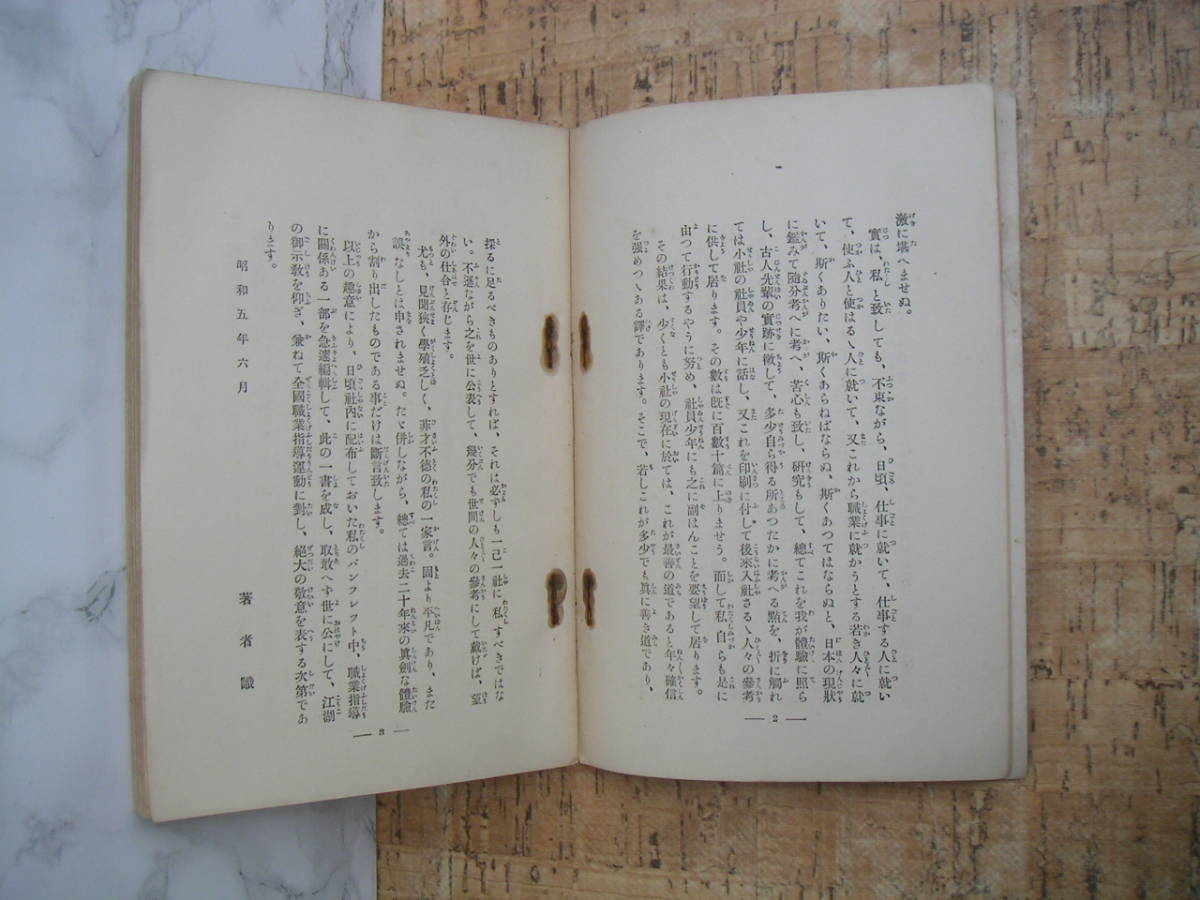 激に堪へませぬ。
實は、私と致しても、不束ながら、日頃、仕事に就いて、仕事する人に就い
て、使ふ人と使はるゝ人に就いて、又これから職業に就かうとする若き人々に就
いて、斯くありたい、斯くあらねばならぬ、斯くあつてはならぬと、日本の現狀
に鑑みて隨分考へに考へ、苦心も致し、硏究もして、總てこれを我が體驗に照ら
し、古人先輩の實跡に徵して、多少自ら得る所あつたかに考へる點を、折に觸れ
ては小社の社員や少年に話し、又これを印刷に付して後來入社さるゝ人々の參考
に供して居ります。その數は旣に百數十篇に上りませう。而して私自らも是に
由つて行動するやうに努め、社員少年にも之に副はんことを要望して居ります。
その結果は、少くとも小社の現在に於ては、これが最善の道であると年々確信
を强めつゝある譯であります。そこで、若しこれが多少でも眞に善き道であり、
— 2 —
採るに足るべきものありとすれば、それは必ずしも一己一社に私すべきではな
い。不遜ながら之を世に公表して、幾分でも世間の人々の參考にして戴けば、望
外の仕合と存じます。
尤も、見聞狹く學殖乏しく、菲才不德の私の一家言。固より平凡であり、また
誤なしとは申されませぬ。たゞ併しながら、總ては過去二十年來の眞劍な體驗
から割り出したものである事だけは斷言致します。
以上の趣意により、日頃社內に配布しておいた私のパンフレツト中、職業指導
に關係ある一部を急遽編輯して、此の一書を成し、取敢へず世に公にして、江湖
の御示敎を仰ぎ、兼ねて全國職業指導運動に對し、絕大の敬意を表する次第であ
ります。
昭和五年六月
著者識
— 3 —